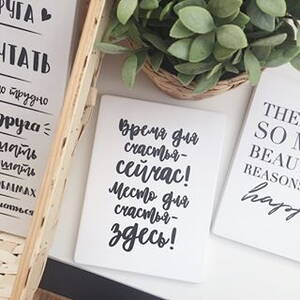 РУГА
ЧТАТЬ
трудно
друга
Время для
счастья-
сейчас!
Место для
счастья-
здесь!
THE
SO M
BEAU
REASONS
happ